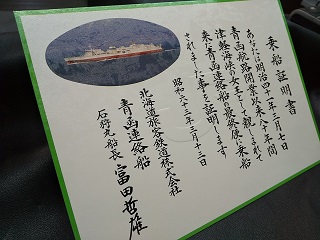 乗船証明書
あなたは明治四十一年三月七日
青函航路開業以来八十年間
津軽海峡の女王として親しまれて
来た青函連絡船の最終便に乗船
されました事を証明します
昭和六十三年三月十三日
北海道旅客鉄道株式会社
青函連絡船
石狩丸船長 富田哲雄